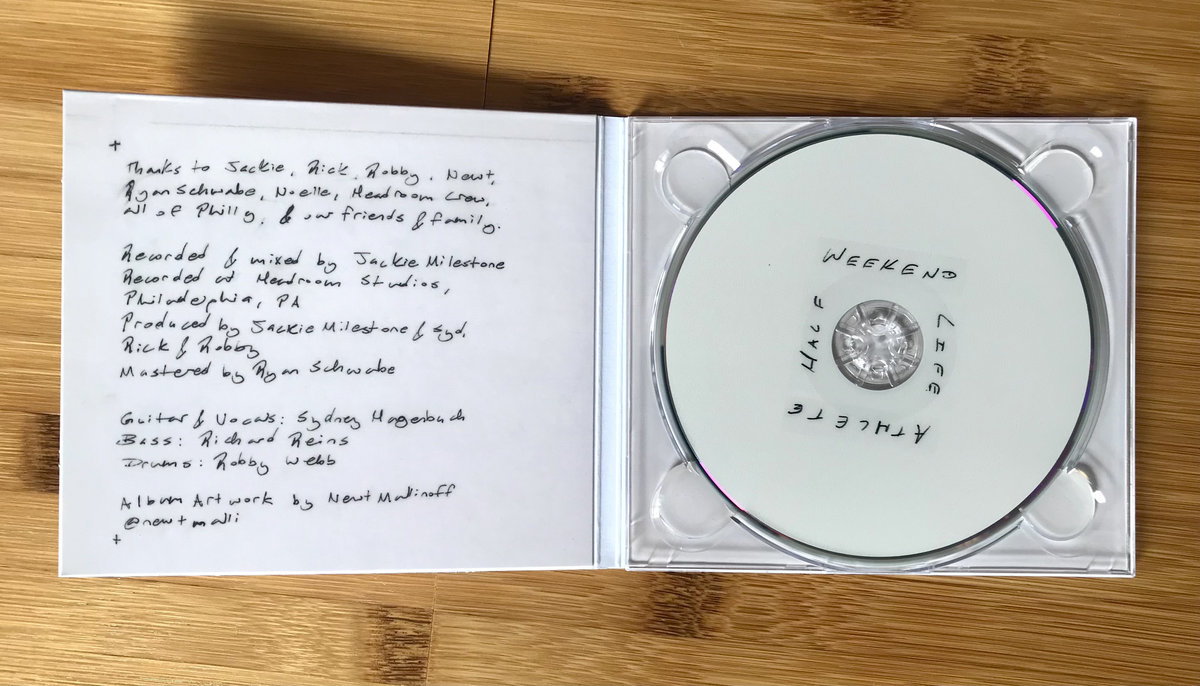 +
Thanks to Jackie, Rick, Robby, Newt,
Ryan Schwabe, Noelle, Headroom Crew,
all of Philly, & our friends & family.
Recorded & mixed by Jackie Milestone
Recorded at Headroom Studios,
Philadelphia, PA
Produced by Jackie Milestone & Syd,
Rick & Robby
Mastered by Ryan Schwabe
Guitar & Vocals: Sydney Hagenbuch
Bass: Richard Reins
Drums: Robby Webb
Album Artwork by Newt Malinoff
@newtmalli
+
WEEKEND
LIFE
ATHLETE
HALF